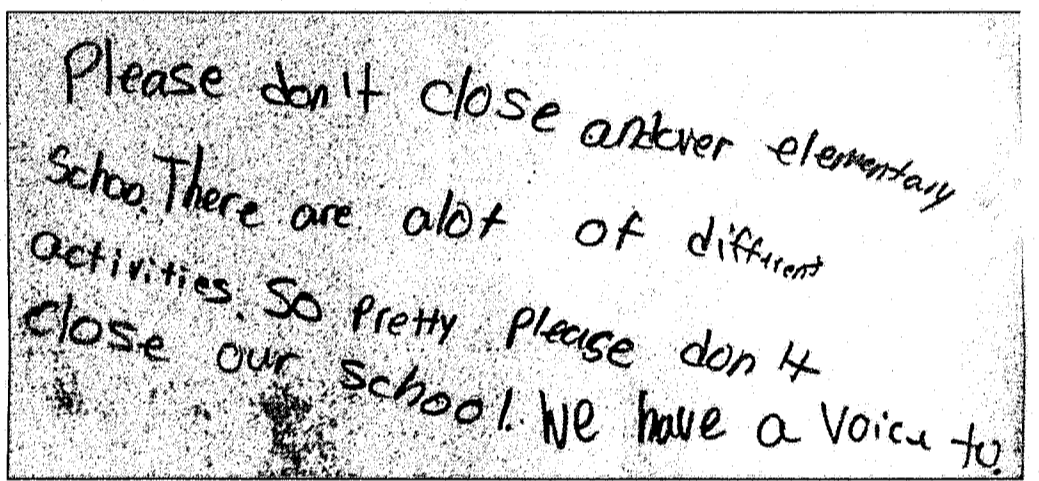 Please don't close andover elementary
schoo. There are alot of different
activities. So Pretty please don't
close our school. We have a voice to.